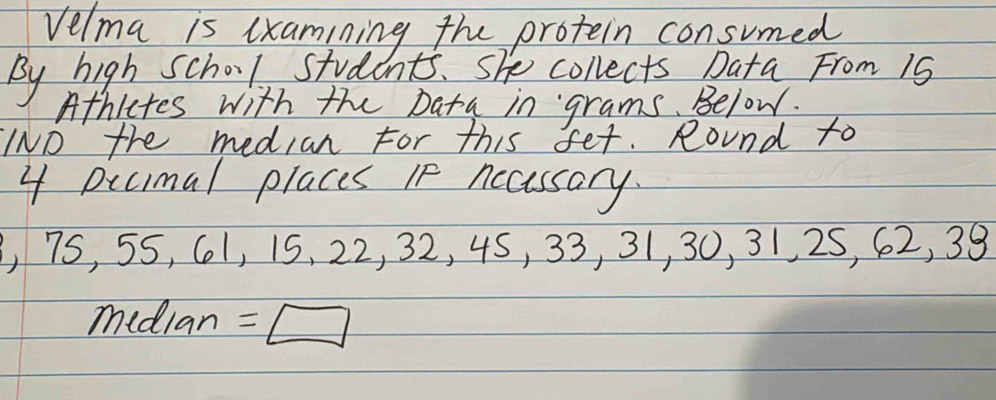 Velma is examining the protein consumed
By high school students. She collects Data From 15
Athletes with the Data in grams. Below.
IND the median For this set. Round to
4 Decimal places IF necessary.
, 75, 55, 61, 15, 22, 32, 45, 33, 31, 30, 31, 25, 62, 38
Median =